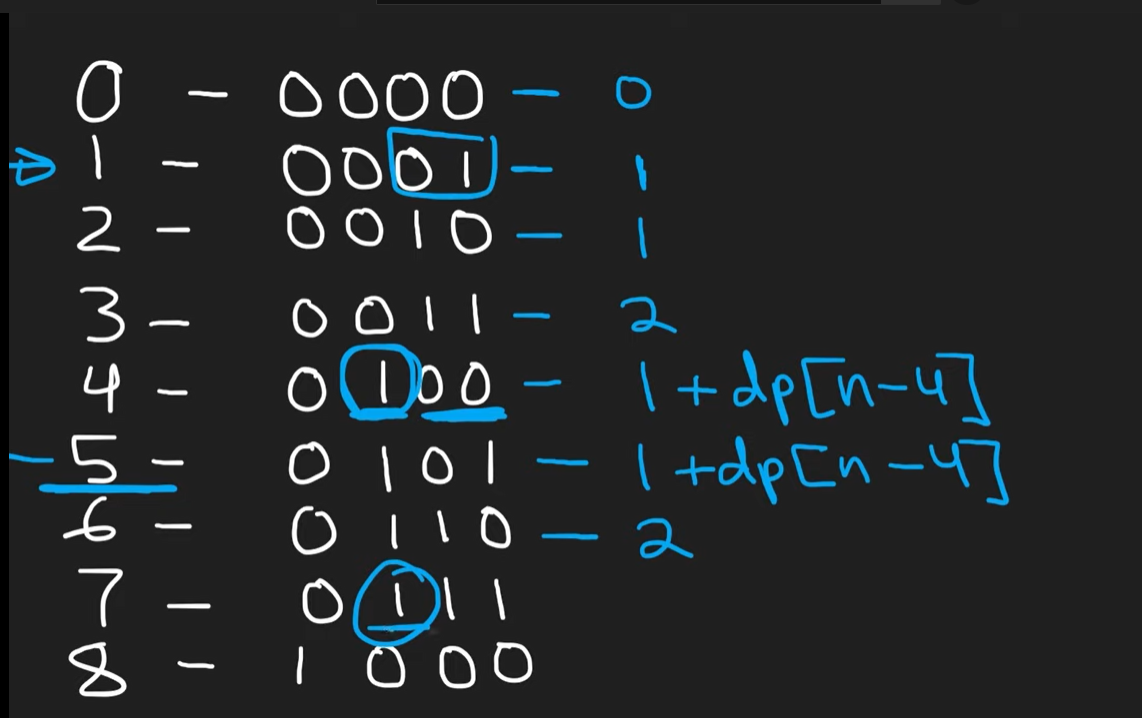 0 - 0000 - 0
1 - 0001 - 1
2 - 0010 - 1
3 - 0011 - 2
4 - 0100 - 1 + dp[n-4]
5 - 0101 - 1 + dp[n-4]
6 - 0110 - 2
7 - 0111
8 - 1000